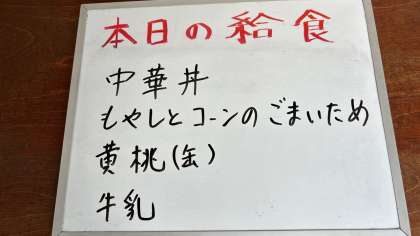 本日の給食
中華丼
もやしとコーンのごまいため
黄桃(缶)
牛乳